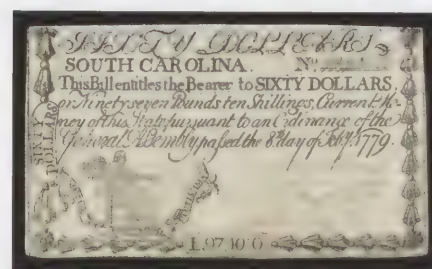 SIXTY DOLLARS
SOUTH CAROLINA. No.
This Bill entitles the Bearer to SIXTY DOLLARS,
or Ninety seven Pounds ten Shillings, Current Mo-
ney of this State, pursuant to an Ordinance of the
General Assembly passed the 8th day of Feby. 1779.
SIXTY
DOLLARS
L97,10,0